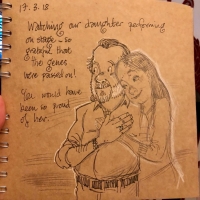 17.3.18
Watching our daughter performing
on stage - so
grateful that
the genes
were passed on!
You would have
been so proud
of her.